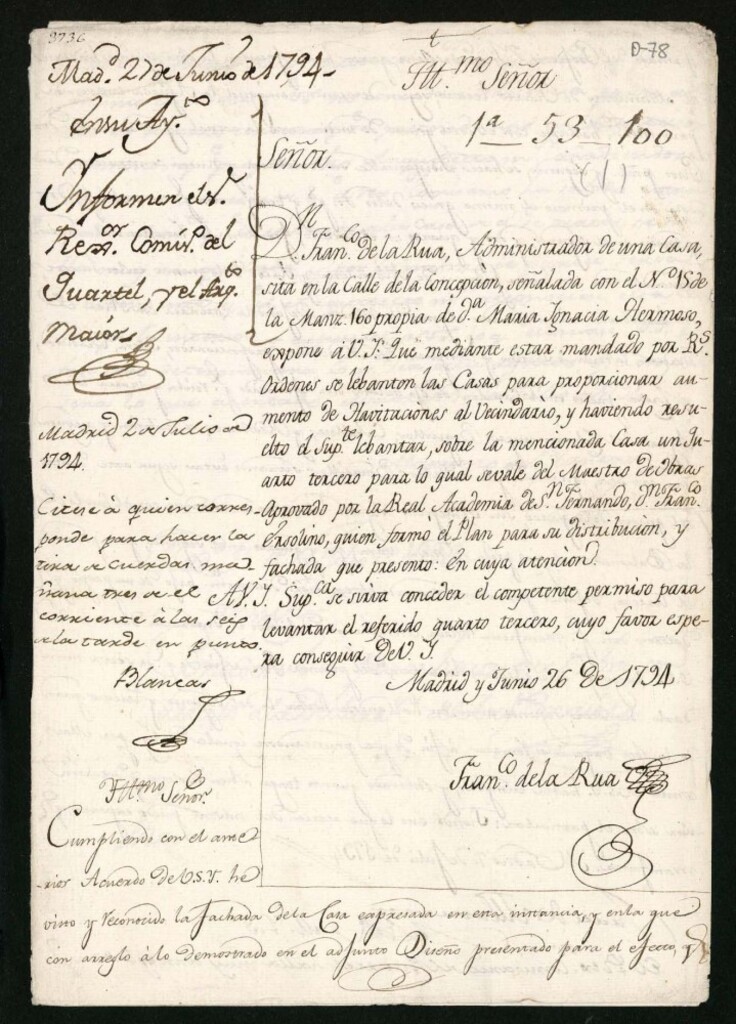 3736
D-78
Mad.d 27 de Junio de 1794
En su Ay.to
Informen el S.r
Rex.or Comis.o del
Quartel, y el Arq.to
maior
Madrid 2 de Julio de
1794.
Citese à quien corres-
ponde para hacer la
tira de cuerdas ma-
ñana tres de el
corriente à las seis
de la tarde en punto.
Blancas
Ill.mo Señor
Cumpliendo con el ante-
rior Acuerdo de V.S.Y. he
visto y reconocido la fachada de la Casa expresada en esta instancia, y en la que
con arreglo à lo demostrado en el adjunto Diseño presentado para el efecto, y
Ill.mo Señor
1a 53 100
Señor.
D.n Fran.co de la Rua, Administrador de una Casa,
sita en la Calle de la Concepcion, señalada con el N.o 15 de
la Manz. 160 propia de D.a Maria Ignacia Hermoso,
expone à V.I. Que mediante estar mandado por R.s
Ordenes se lebanten las Casas para proporcionar au-
mento de Havitaciones al Vecindario, y haviendo resu-
elto el Sup.te lebantar, sobre la mencionada Casa un Qu-
arto tercero para lo qual se vale del Maestro de Obras
Aprovado por la Real Academia de S.n Fernando, D.n Fran.co
Ersolino, quien formó el Plan para su distribucion, y
fachada que presento: En cuya atencion.
A V.I. Sup.ca se sirva conceder el competente permiso para
levantar el referido quarto tercero, cuyo favor espe-
ra conseguir De V.I.
Madrid y Junio 26 De 1794
Fran.co de la Rua